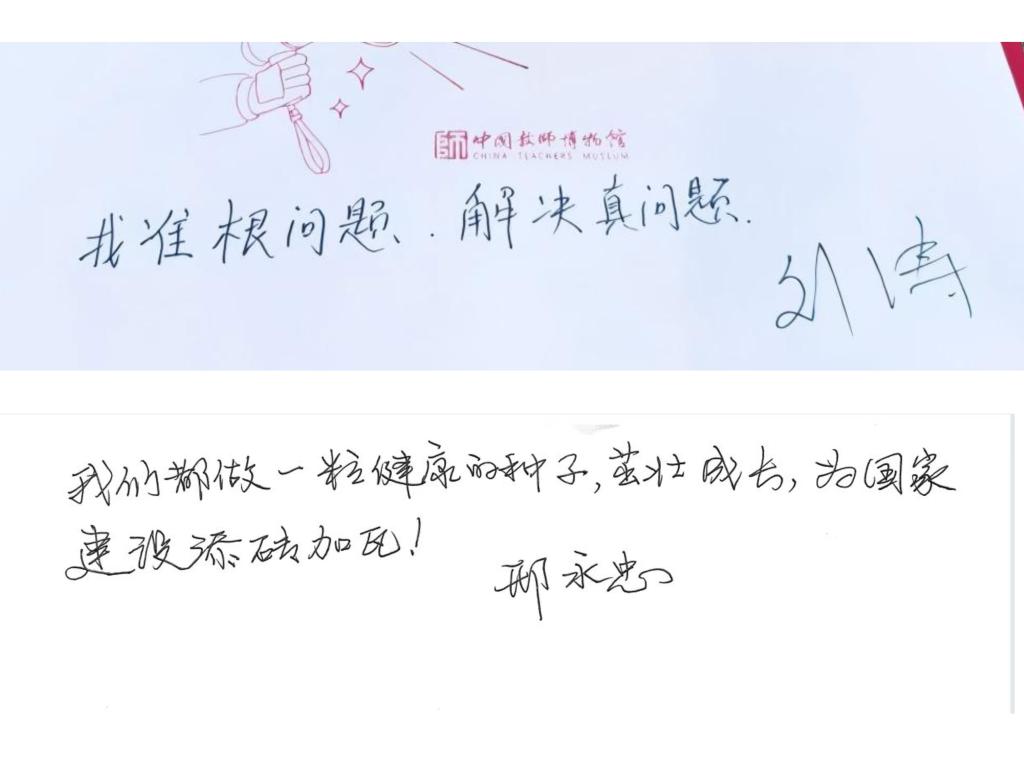 師 中国教师博物馆
CHINA TEACHERS MUSEUM
找准根问题、解决真问题.
刘涛
我们都做一粒健康的种子,茁壮成长,为国家
建设添砖加瓦!
邢永忠